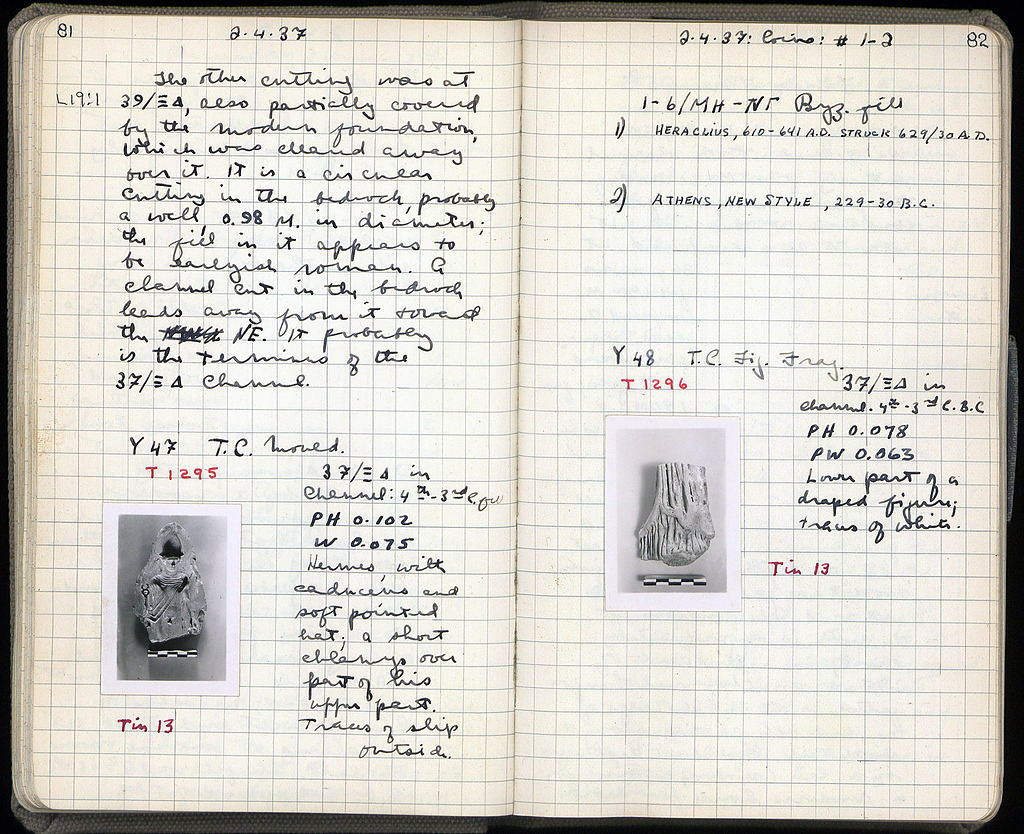 81
2.4.37
The other cutting was at
L19:1
39/ΞΔ, also partially covered
by the modern foundation,
which was cleared away
over it. It is a circular
cutting in the bedrock, probably
a well, 0.98 M. in diameter;
the fill in it appears to
be earlyish roman. A
channel cut in the bedrock
leads away from it toward
the NE. It probably
is the terminus of the
37/ΞΔ channel.
Y 47 T.C. Mould.
T 1295
37/ΞΔ in
Channel: 4th-3rd C. fill
PH 0.102
W 0.075
Hermes, with
caduceus and
soft pointed
hat; a short
chlamys over
part of his
upper part.
Traces of slip
outside.
Tin 13
2.4.37: Coins: # 1-2
82
1-6/ΜΗ-ΝΓ Byz. fill
1) HERACLIUS, 610-641 A.D. STRUCK 629/30 A.D.
2) ATHENS, NEW STYLE, 229-30 B.C.
Y 48 T.C. Fig. Frag.
T 1296
37/ΞΔ in
channel. 4th-3rd C. B.C
PH 0.078
PW 0.063
Lower part of a
draped figure;
traces of white.
Tin 13